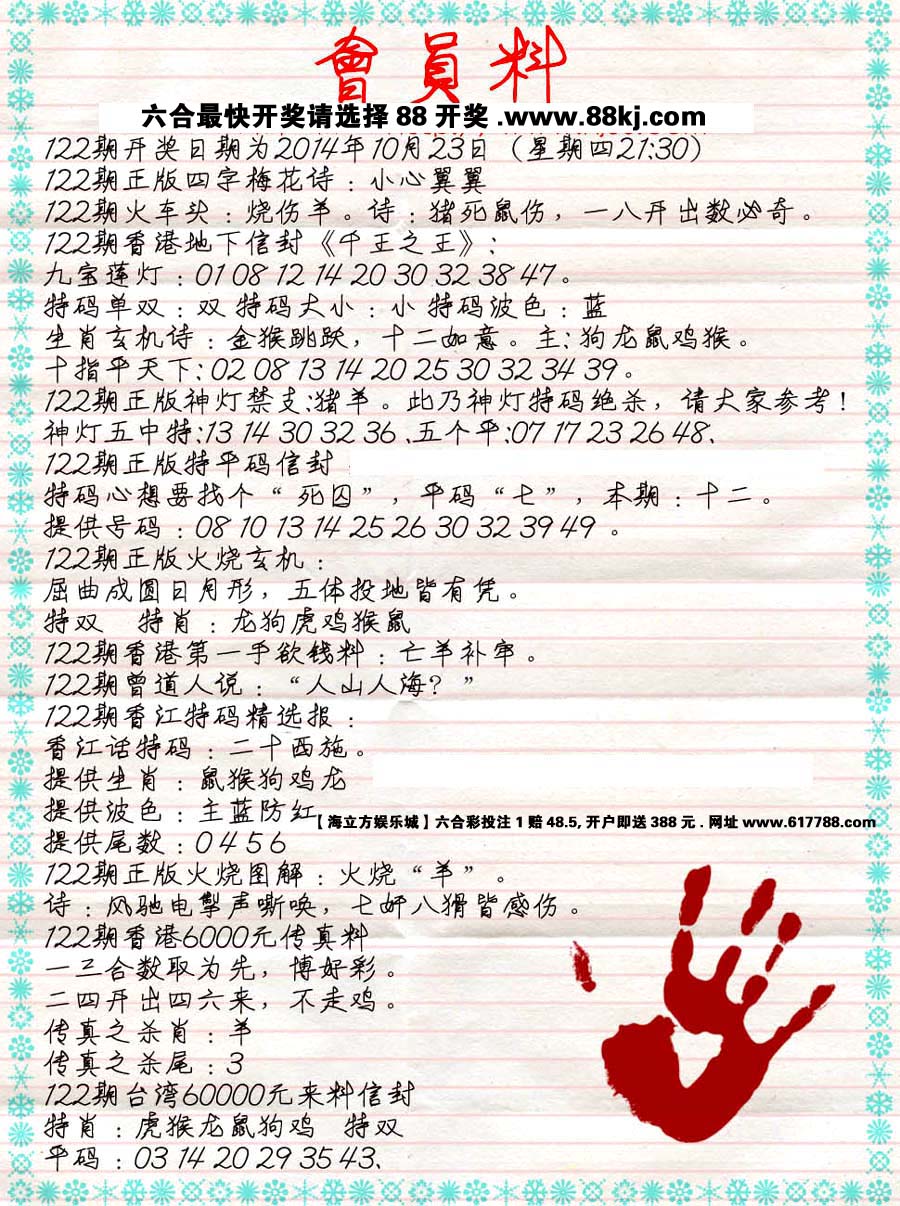 會員料
六合最快开奖请选择 88 开奖 .www.88kj.com
122期开奖日期为2014年10月23日（星期四21:30）
122期正版四字梅花诗：小心翼翼
122期火车头：烧伤羊。诗：猪死鼠伤，一八开出数必奇。
122期香港地下信封《千王之王》：
九宝莲灯：01 08 12 14 20 30 32 38 47。
特码单双：双 特码大小：小 特码波色：蓝
生肖玄机诗：金猴跳跃，十二如意。主：狗龙鼠鸡猴。
十指平天下：02 08 13 14 20 25 30 32 34 39。
122期正版神灯禁支：猪羊。此乃神灯特码绝杀，请大家参考！
神灯五中特：13 14 30 32 36、五个平：07 17 23 26 48、
122期正版特平码信封
特码心想要找个“死囚”，平码“七”，本期：十二。
提供号码：08 10 13 14 25 26 30 32 39 49 。
122期正版火烧玄机：
屈曲成圆日月形，五体投地皆有凭。
特双 特肖：龙狗虎鸡猴鼠
122期香港第一手欲钱料：亡羊补牢。
122期曾道人说：“人山人海？”
122期香江特码精选报：
香江话特码：二十西施。
提供生肖：鼠猴狗鸡龙
提供波色：主蓝防红
【海立方娱乐城】六合彩投注 1 赔 48.5, 开户即送 388 元 . 网址 www.617788.com
提供尾数：0 4 5 6
122期正版火烧图解：火烧“羊”。
诗：风驰电掣声嘶唤，七奸八猾皆感伤。
122期香港6000元传真料
一三合数取为先，博好彩。
二四开出四六来，不走鸡。
传真之杀肖：羊
传真之杀尾：3
122期台湾60000元来料信封
特肖：虎猴龙鼠狗鸡 特双
平码：03 14 20 29 35 43、